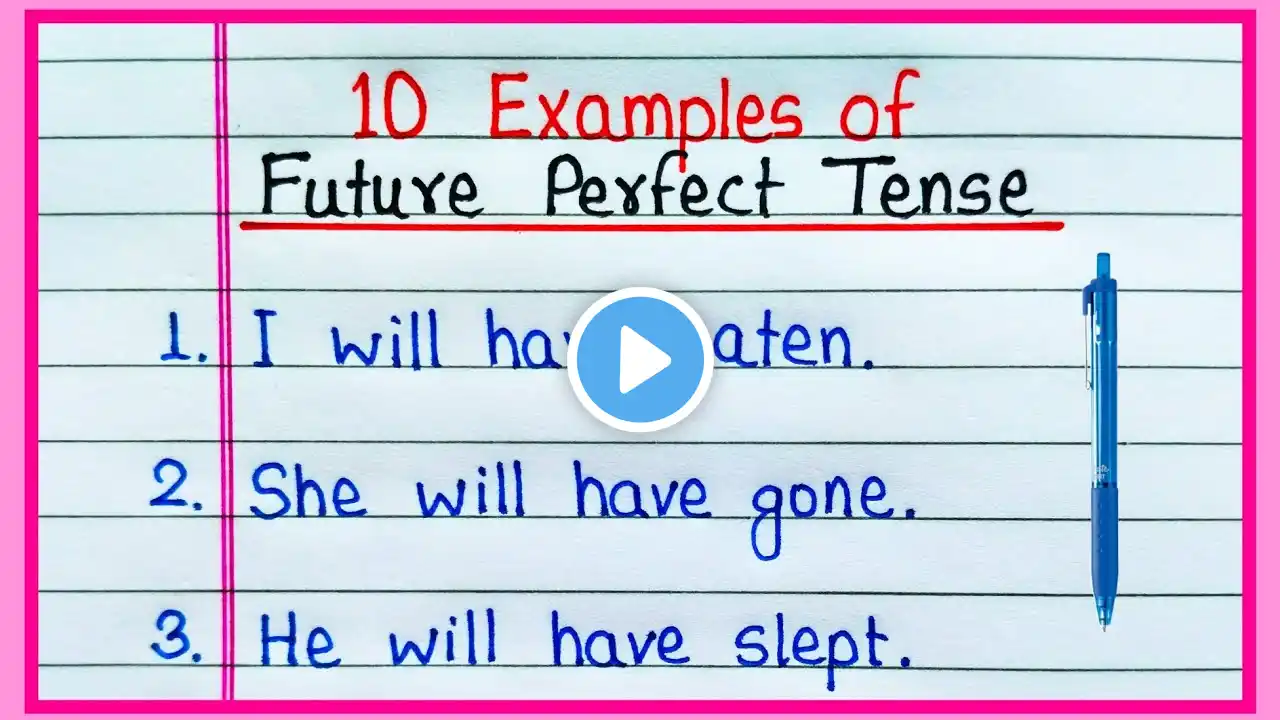 10 Examples of
Future Perfect Tense
1. I will ha aten.
2. She will have gone.
3. He will have slept.